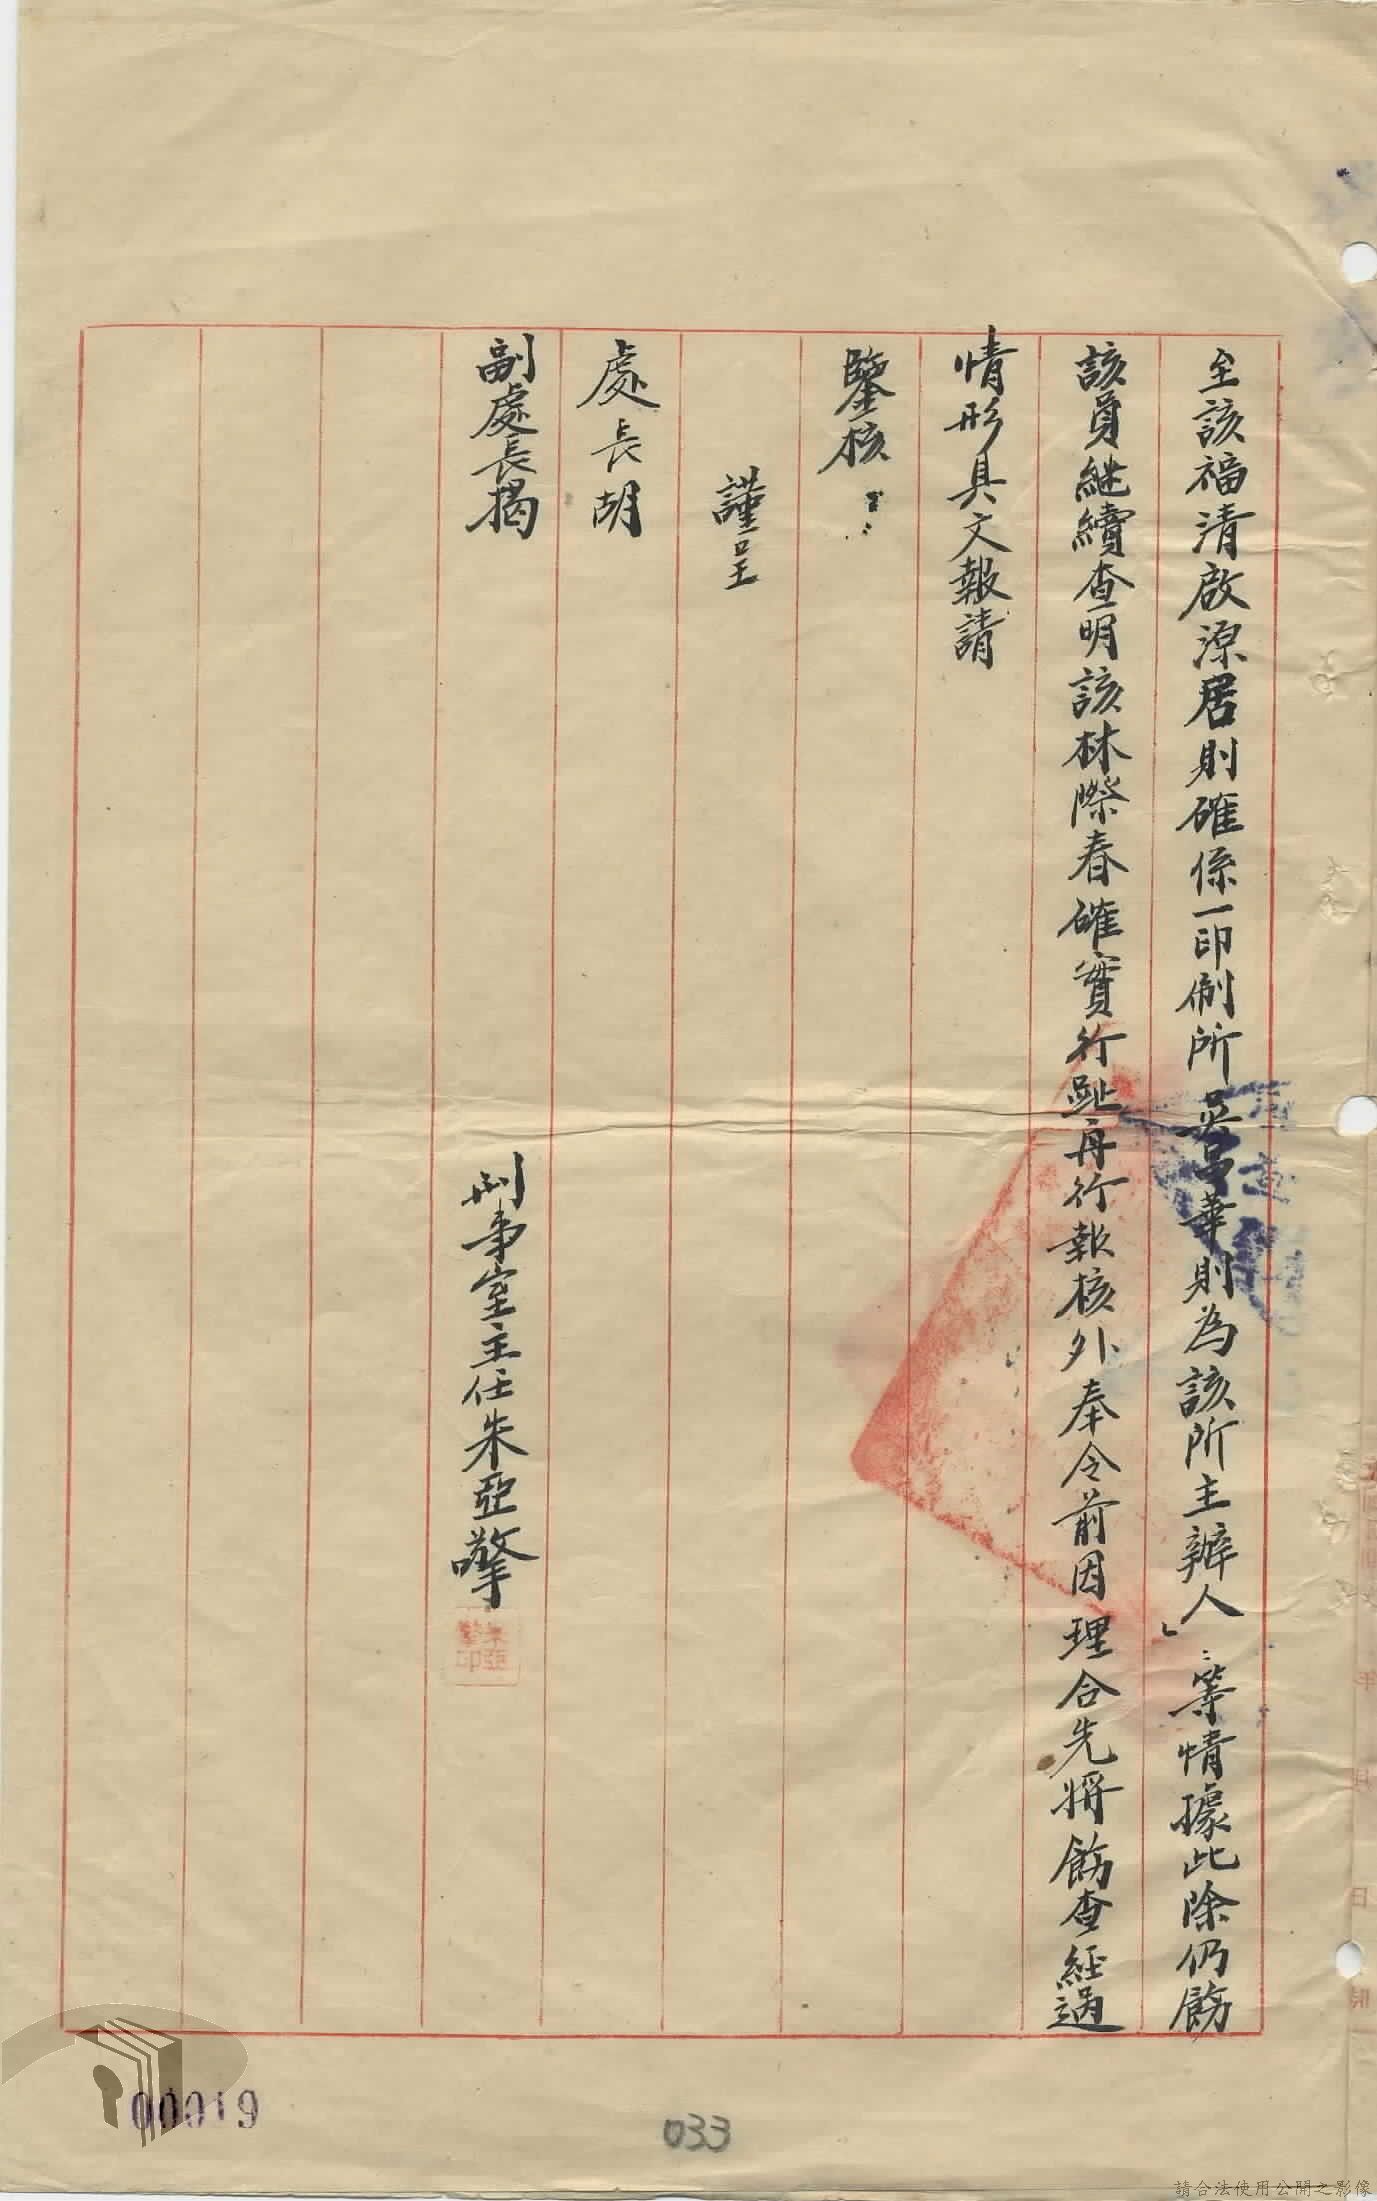 至該福清啟源居則確係一印刷所吳昌華則為該所主辦人」等情據此除仍飭
該員継續查明該林際春確實行踪再行報核外奉令前因理合先將飭查經過
情形具文報請
鑒核
謹呈
處長胡
副處長揭
刑事室主任朱亞擎
朱亞擎印
00019
033
請合法使用公開之影像